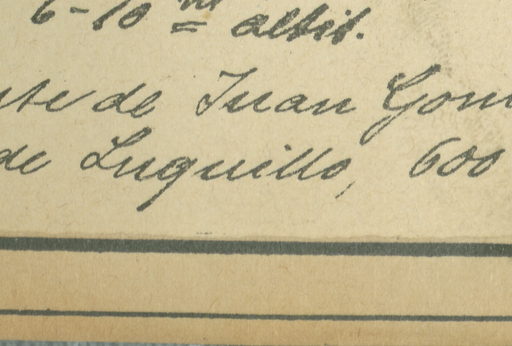 6-10 m altit.
de Juan Gom
de Luquillo, 600